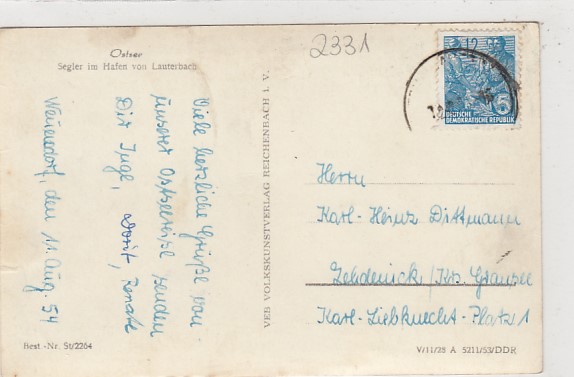 Ostsee
Segler im Hafen von Lauterbach
2331
12
DEUTSCHE
DEMOKRATISCHE REPUBLIK
5
Viele herzliche Grüße von
unserer Ostseereise senden
Dir Inge, Dorit, Renate
den 11. Aug. 54
VEB VOLKSKUNSTVERLAG REICHENBACH I. V.
Herrn
Karl-Heinz Dittmann
Zehdenick/Krs. Gransee
Karl-Liebknecht-Platz 1
Best.-Nr. St/2264
V/11/28 A 5211/53/DDR